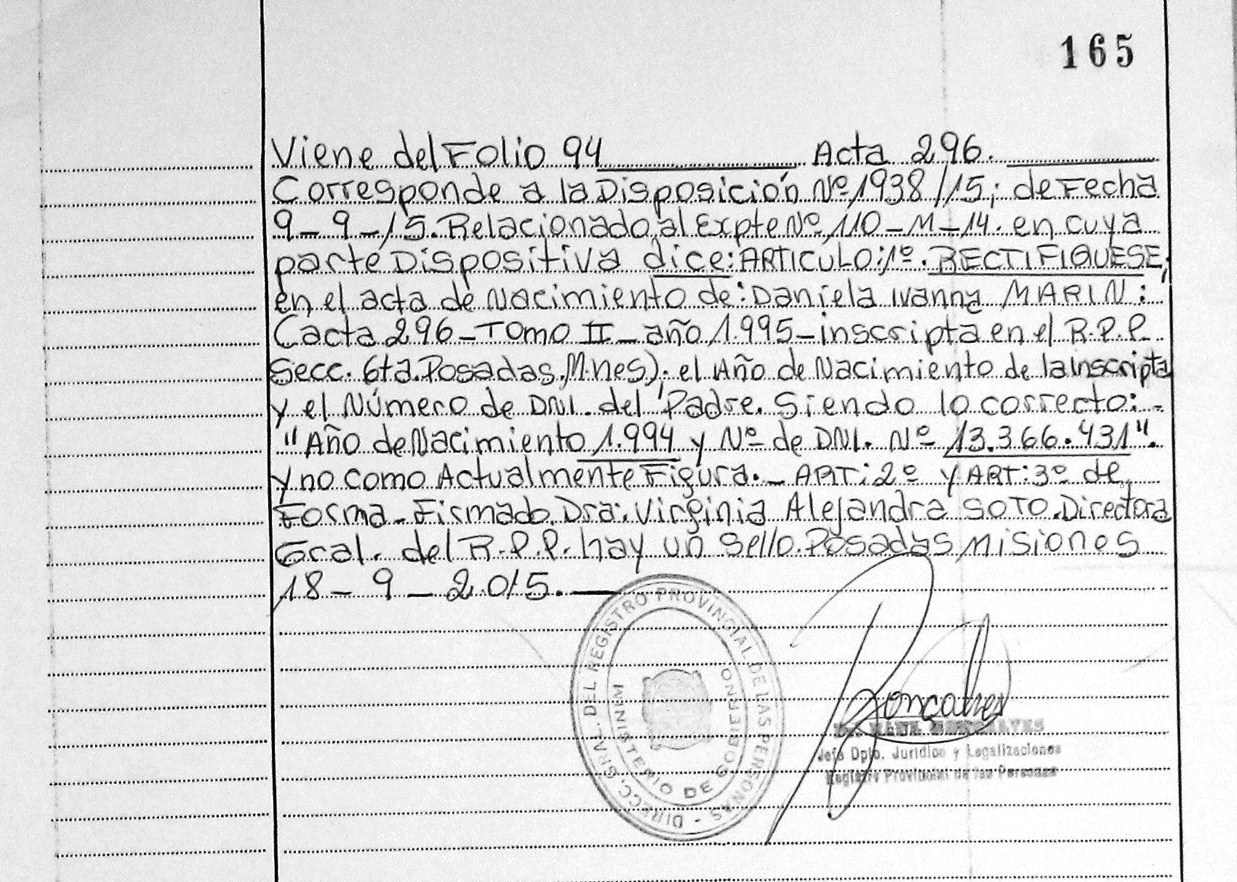 165
Viene del Folio 94 Acta 296.
Corresponde a la Disposición Nº 1938/15; de Fecha
9-9-15. Relacionado al Expte Nº 110-M-14. en cuya
parte Dispositiva dice: ARTICULO: 1º. RECTIFIQUESE,
en el acta de Nacimiento de: Daniela Ivanna MARIN:
Cacta 296-Tomo II-año 1.995-inscripta en el R.P.P.
Secc. 6ta. Posadas, M.nes). el Año de Nacimiento de la inscripta
y el Número de DNI. del Padre. Siendo lo correcto:-
"Año de Nacimiento 1.994 y Nº de DNI. Nº 13.366.431".
y no como Actualmente Figura.- ART: 2º y ART: 3º de
Forma-Firmado. Dra. Virginia Alejandra SOTO. Directora
Gral. del R.P.P. hay un Sello. Posadas Misiones
18-9-2.015.-
DIRECC. GRAL. DEL REGISTRO PROVINCIAL DE LAS PERSONAS -
MINISTERIO DE GOBIERNO
Jefe Dpto. Jurídico y Legalizaciones
Registro Provincial de las Personas